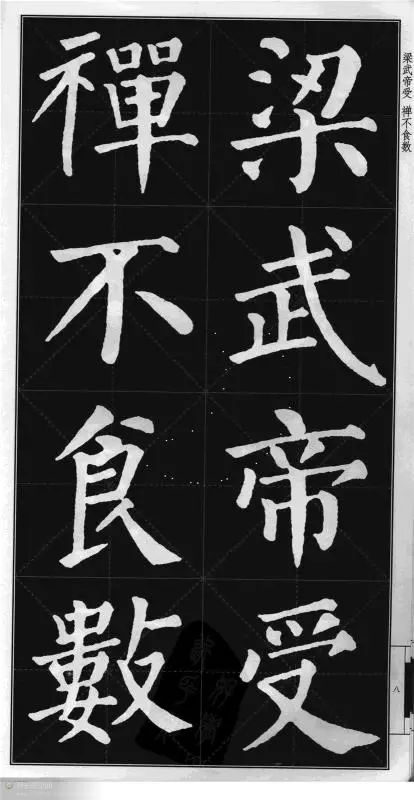 梁武帝受
禪不食數
梁武帝受 禅不食数
八